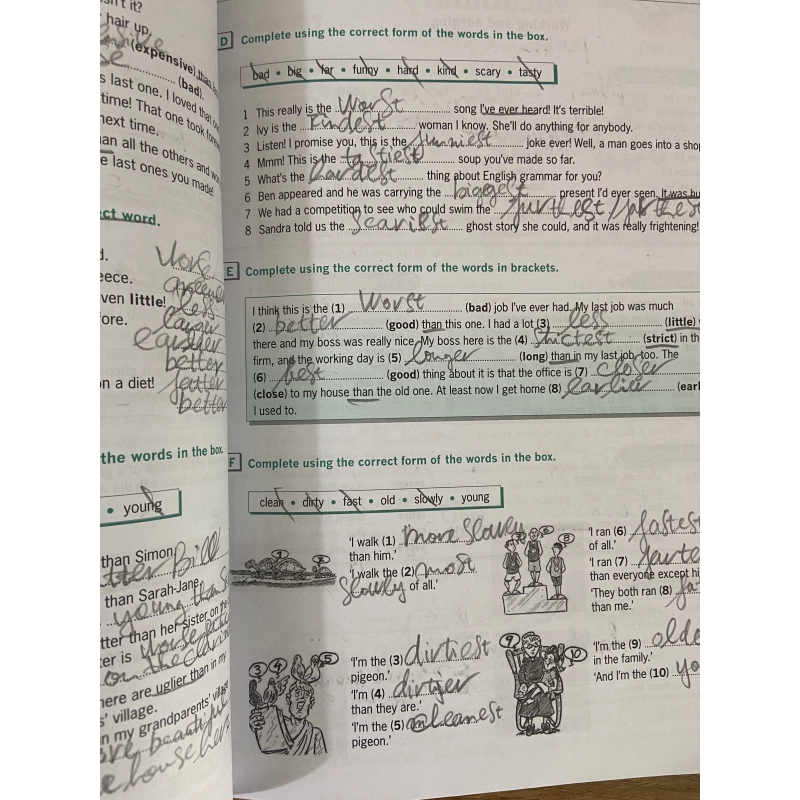 n't it?
hair up.
(expensive) than
(bad).
s last one. I loved that
time! That one took
next time.
an all the others and
e last ones you made!
ct word.
d.
eece.
ven little!
ore.
n a diet!
worse
less
larger
easier
better
better
the words in the box.
• young
than Simon.
Bill
than Sarah-Jane.
young than
tter than her sister on the
er is worse
on the Clarin
here are uglier than in my
s' village.
n my grandparents' village
beautiful
D Complete using the correct form of the words in the box.
bad • big • far • funny • hard • kind • scary • tasty
1 This really is the Worst song I've ever heard! It's terrible!
2 Ivy is the Kindest woman I know. She'll do anything for anybody.
3 Listen! I promise you, this is the funniest joke ever! Well, a man goes into a sho
4 Mmm! This is the tastiest soup you've made so far.
5 What's the hardest thing about English grammar for you?
6 Ben appeared and he was carrying the biggest present I'd ever seen. It was hu
7 We had a competition to see who could swim the furthest / farthest
8 Sandra told us the scariest ghost story she could, and it was really frightening!
E Complete using the correct form of the words in brackets.
I think this is the (1) Worst (bad) job I've ever had. My last job was much
(2) better (good) than this one. I had a lot (3) less (little)
there and my boss was really nice. My boss here is the (4) strictest (strict) in th
firm, and the working day is (5) longer (long) than in my last job, too. The
(6) best (good) thing about it is that the office is (7) closer
(close) to my house than the old one. At least now I get home (8) earlier (earl
I used to.
F Complete using the correct form of the words in the box.
clean • dirty • fast • old • slowly • young
'I walk (1) more slowly
than him.'
'I walk the (2) most
slowly of all.'
1 2
'I ran (6) fastest
of all.'
'I ran (7) faste
than everyone except hi
'They both ran (8) fa
than me.'
6 8
'I'm the (3) dirtiest
pigeon.'
'I'm (4) dirtier
than they are.'
'I'm the (5) cleanest
pigeon.'
3 4 5
'I'm the (9) olde
in the family.'
'And I'm the (10) yo
9 10